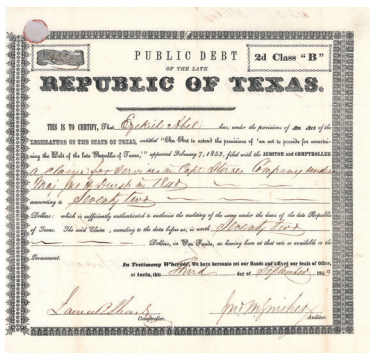 PUBLIC DEBT
OF THE LATE
2d Class "B"
REPUBLIC OF TEXAS.
THIS IS TO CERTIFY, That Ezekiel has, under the provisions of An Act of the
LEGISLATURE OF THE STATE OF TEXAS, entitled "An Act to extend the provisions of 'an act to provide for ascertaining
the Debt of the late Republic of Texas,'" approved February 7, 1853, filed with the AUDITOR and COMPTROLLER
a claim for services in Capt Company under
Maj
amounting to Seventy two
Dollars: which is sufficiently authenticated to authorize the auditing of the same under the laws of the late Republic
of Texas. The said Claim, according to the data before us, is worth Seventy two
Dollars, in Par Funds, as having been at that rate so available to the
Government.
In Testimony Whereof, We have hereunto set our Hands and affixed our Seals of Office,
at Austin, this Third day of September 185
James
Comptroller. Auditor.